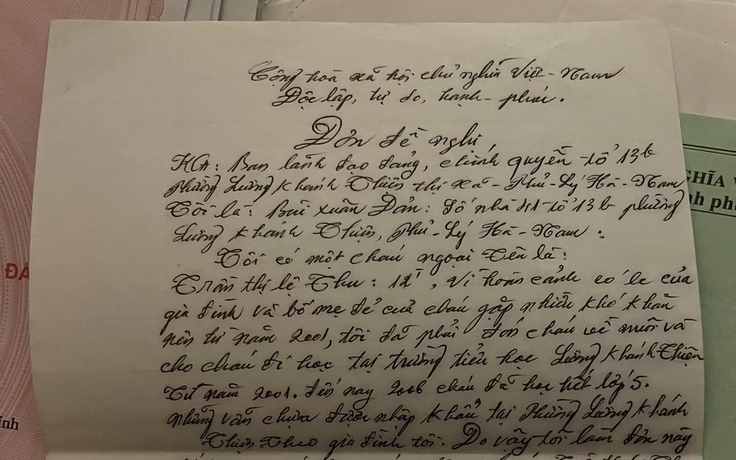 Cộng hoà xã hội chủ nghĩa Việt - Nam
Độc lập, tự do, hạnh - phúc.
Đơn đề nghị
KG: Ban lãnh đạo đảng, chính quyền tổ 13b
phường Lương Khánh Thiện thị xã - Phủ - Lý Hà - Nam
Tôi là: Bùi Xuân Đản: Số nhà tổ 13b phường
Lương Khánh Thiện, Phủ - Lý Hà - Nam.
Tôi có một cháu ngoại tên là:
Trần thị lệ Thu: 12t, Vì hoàn cảnh éo le của
gia đình và bố mẹ đẻ của cháu gặp nhiều khó khăn
nên từ năm 2001, tôi đã phải đón cháu về nuôi và
cho cháu đi học tại trường tiểu học Lương Khánh Thiện
Từ năm 2001. đến nay 2006 cháu đã học hết lớp 5.
nhưng vẫn chưa được nhập khẩu tại Phường Lương Khánh
Thiện theo gia đình tôi. Do vậy tôi làm đơn này
GHĨA V
nh ph
ĐẢ